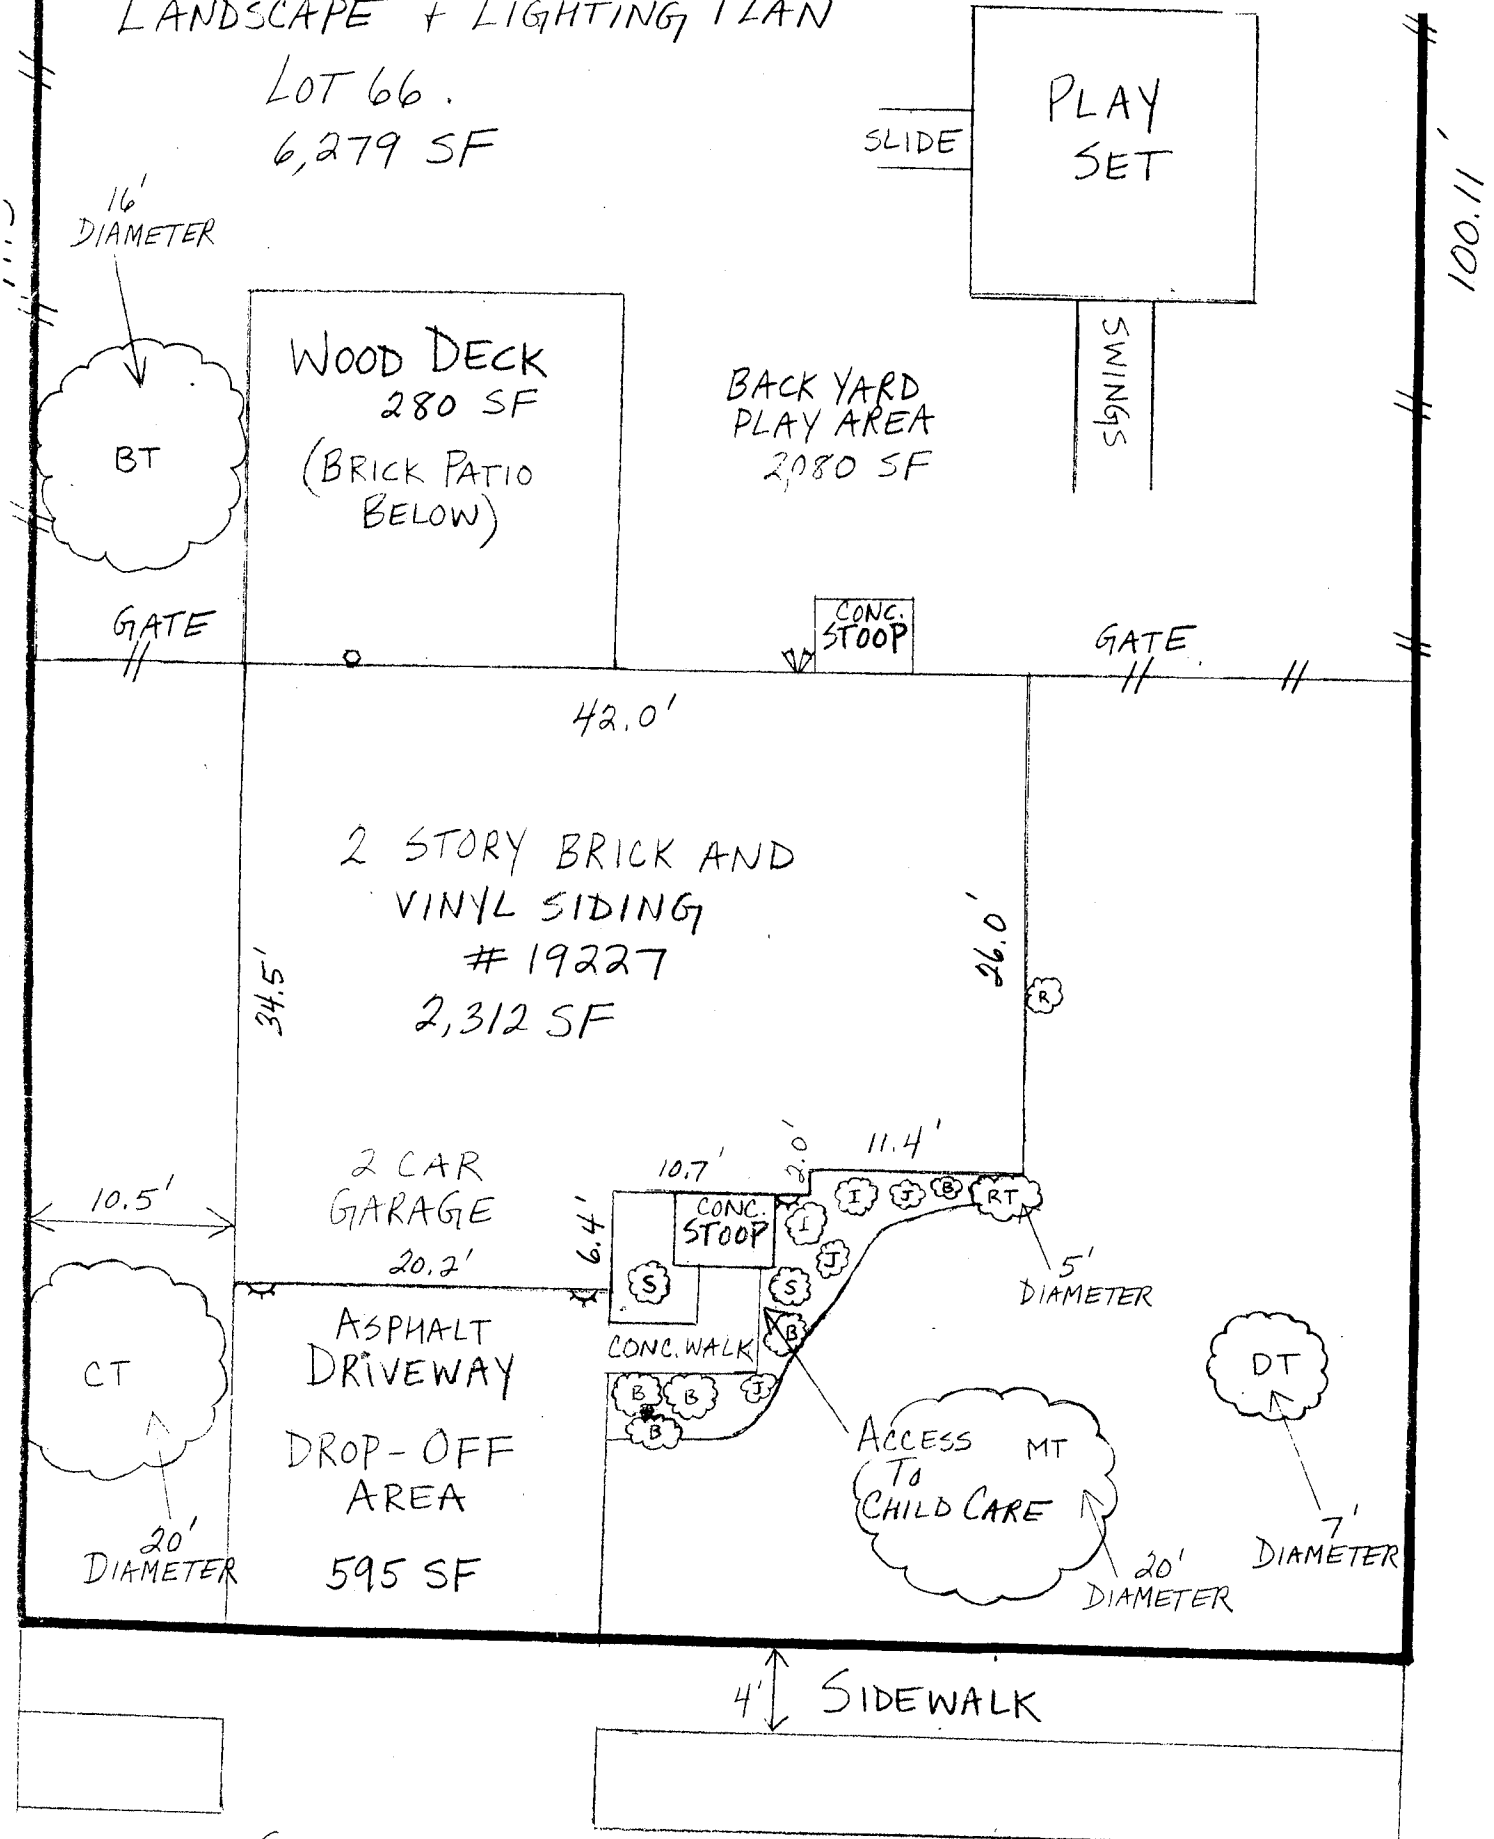 LANDSCAPE + LIGHTING PLAN
LOT 66.
6,279 SF
PLAY
SET
SLIDE
SWINGS
100.11'
16'
DIAMETER
BT
WOOD DECK
280 SF
(BRICK PATIO
BELOW)
BACK YARD
PLAY AREA
2,080 SF
GATE
CONC.
STOOP
GATE
42.0'
2 STORY BRICK AND
VINYL SIDING
# 19227
2,312 SF
34.5'
26.0'
R
2 CAR
GARAGE
20.2'
10.5'
6.4'
10.7'
2.0'
11.4'
CONC.
STOOP
I
J
B
RT
I
J
S
S
B
5'
DIAMETER
CONC. WALK
B
B
J
B
CT
20'
DIAMETER
ASPHALT
DRIVEWAY
DROP-OFF
AREA
595 SF
ACCESS
TO
CHILD CARE
MT
20'
DIAMETER
DT
7'
DIAMETER
4'
SIDEWALK